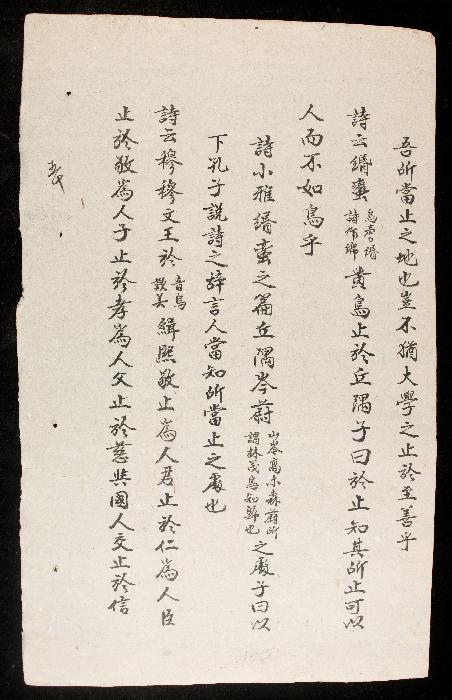 吾所當止之地也豈不猶大學之止於至善乎
詩云緡蛮鳥声緡詩作綿黄鳥止於丘隅子曰於止知其所止可以
人而不如鳥乎
詩小雅緡蛮之篇丘隅岑蔚山岑高木森蔚所謂林茂鳥知歸也之處子曰以
下孔子説詩之辞言人當知所當止之處也
詩云穆穆文王於音烏歎美緝熙敬止為人君止於仁為人臣
止於敬為人子止於孝為人父止於慈與國人交止於信